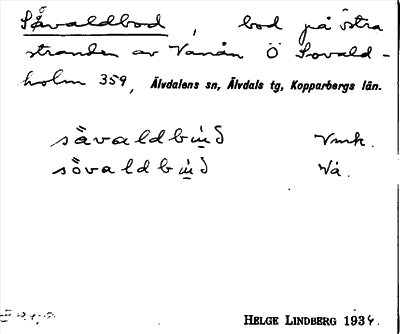 Såvaldbod, bod på östra
stranden av Vanån Ö Sovald-
holm 359, Älvdalens sn, Älvdals tg, Kopparbergs län.
Vmk.
Vå.
HELGE LINDBERG 1934.